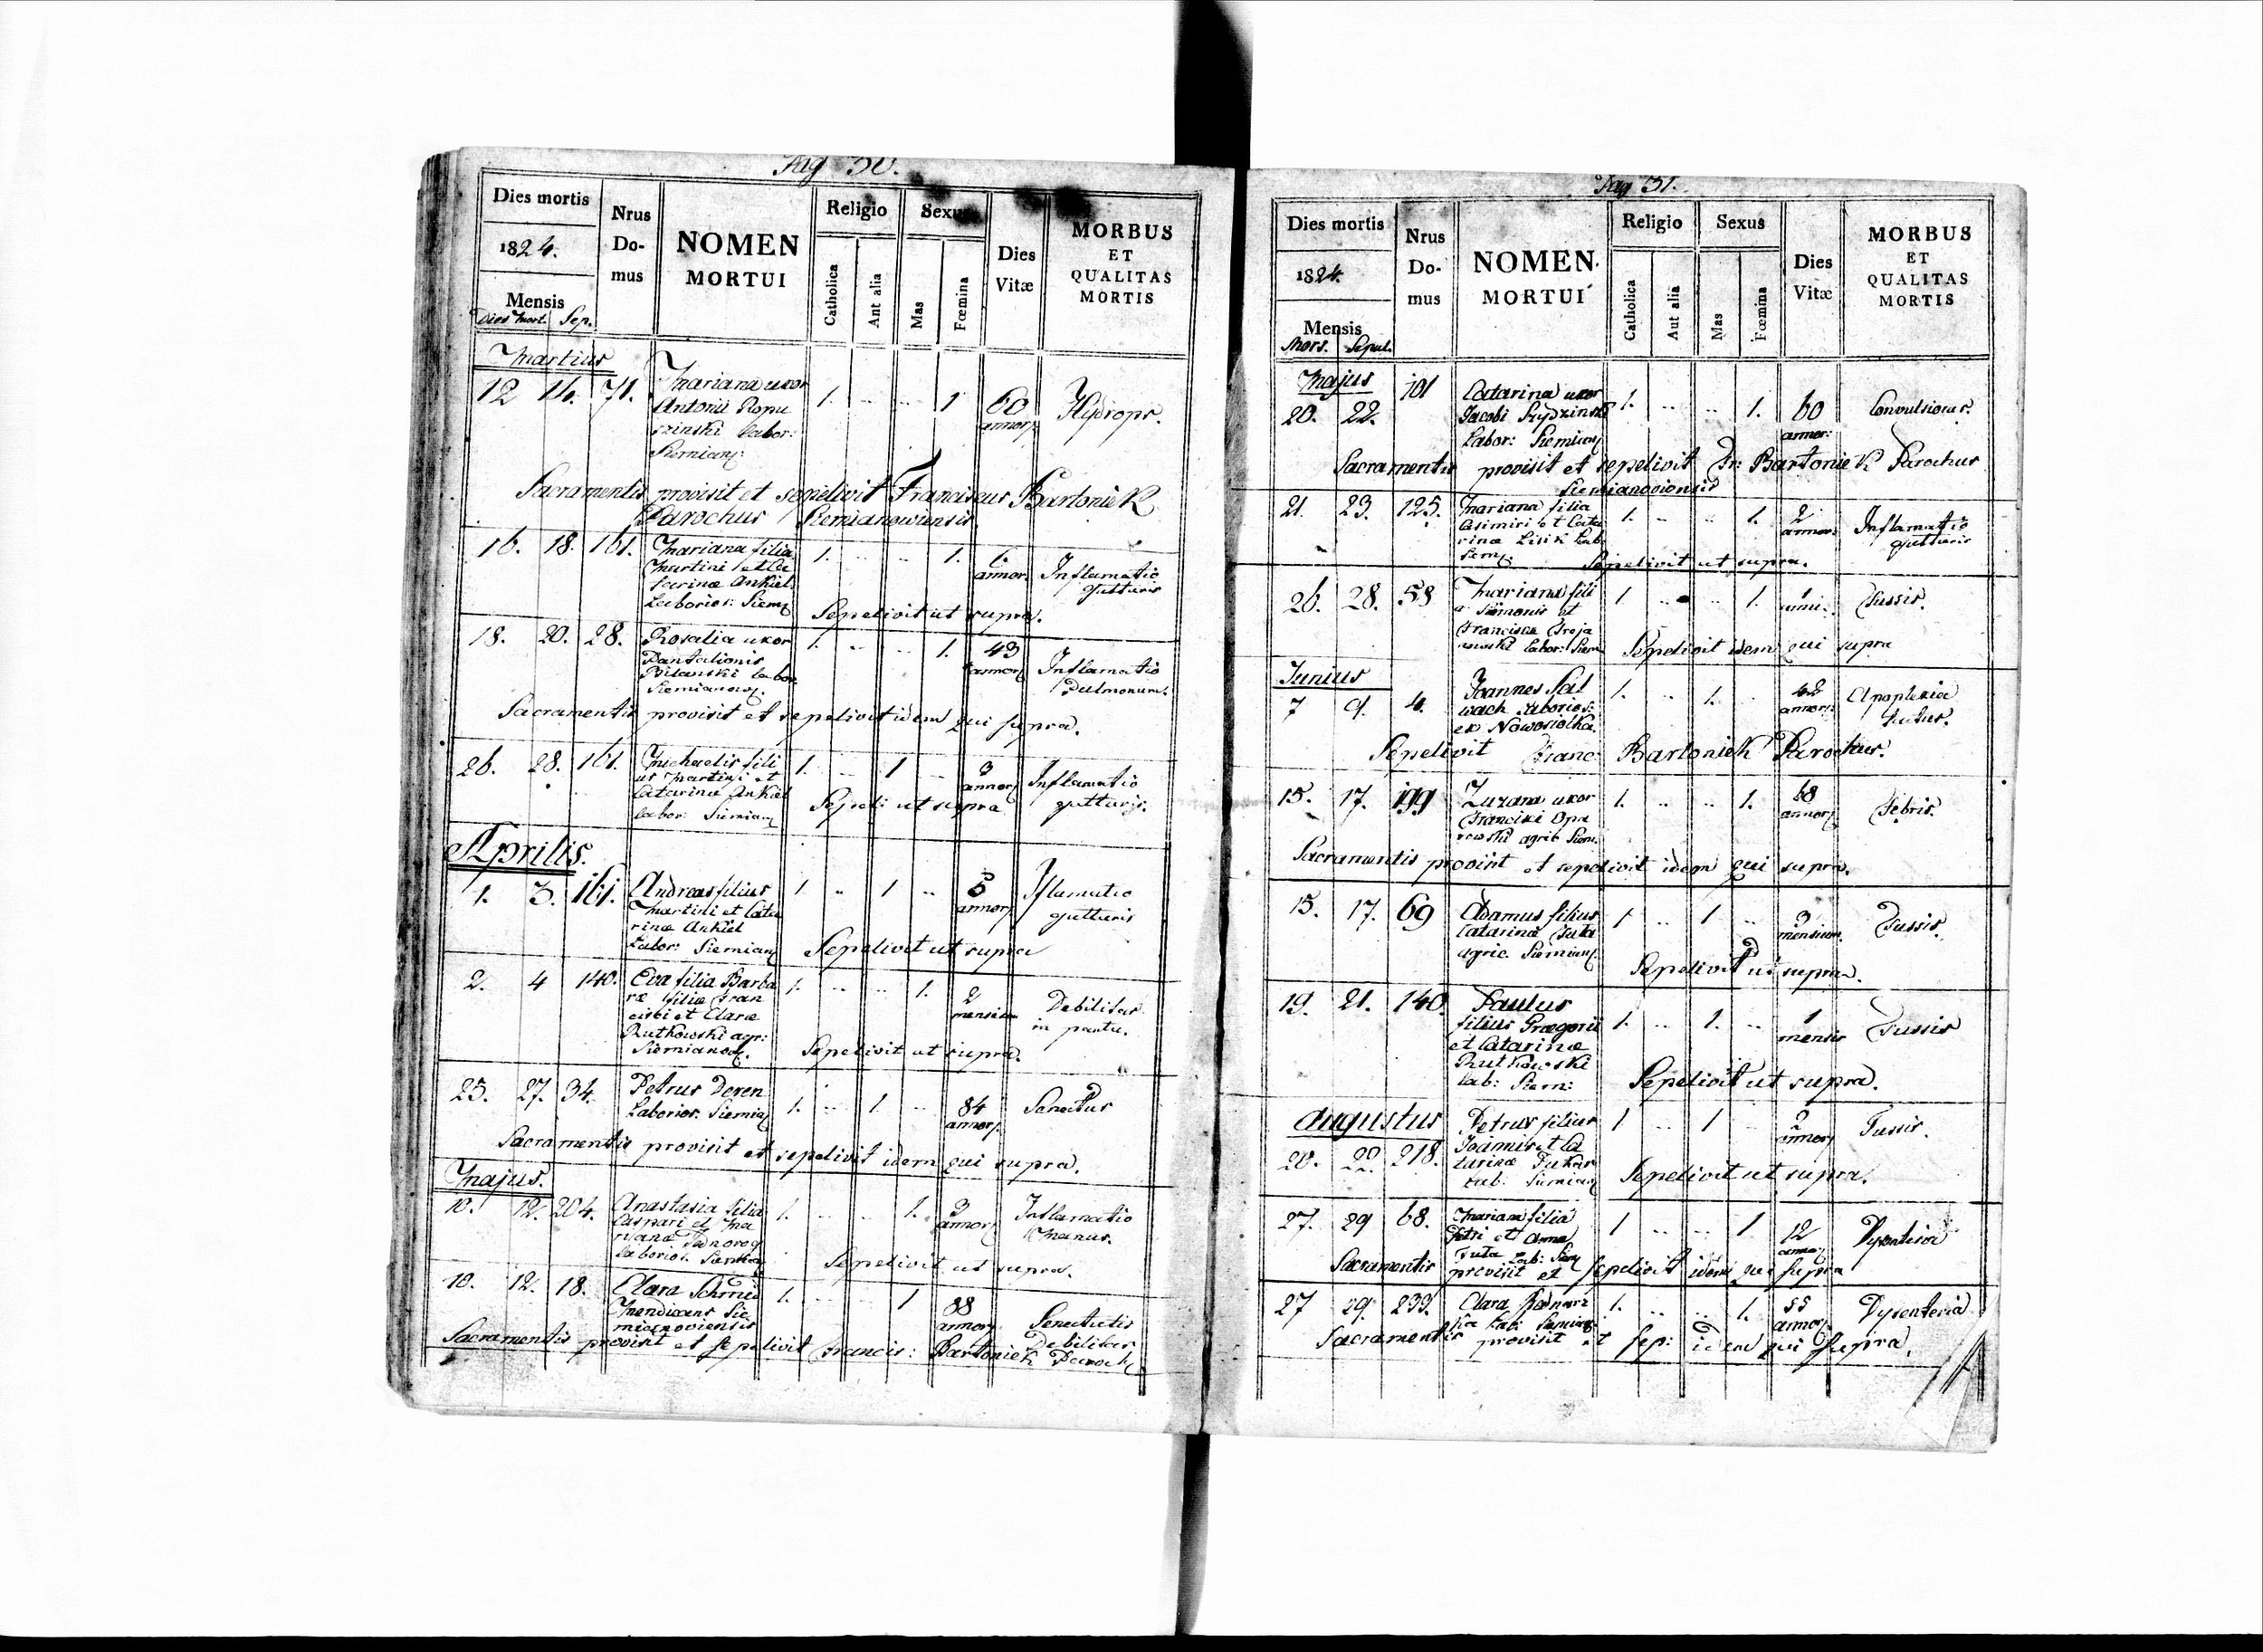 Pag 30.
Dies mortis
1824.
Mensis
Dies Mort. Sep.
Nrus
Do-
mus
NOMEN
MORTUI
Religio
Catholica
Aut alia
Sexus
Mas
Fœmina
Dies
Vitæ
MORBUS
ET
QUALITAS
MORTIS
Martius
12 14. 71. Mariana uxor 1. .. .. 1 60 Hydrops.
Antonii Ropu annor:
szinski Labor:
Siemian:
Sacramentis provisit et sepelivit Franciscus Bartoniek
Parochus Siemianowiensis
16. 18. 161. Mariana filia 1. .. .. 1. 6. Inflamatio
Martini et Ca annor: gutturis
tarinæ Ankiel
Laborios: Siem:
Sepelivit ut supra.
18. 20. 28. Rosalia uxor 1. .. .. 1. 43 Inflamatio
Pantalionis annor: Pulmonum.
Bilanski Labor
Siemianow:
Sacramentis provisit et sepelivit idem qui supra.
26. 28. 161. Michaelis fili 1. .. 1 .. 3 Inflamatio
us Martini et annor: gutturis.
Catarinæ Ankiel
Labor: Siemian:
Sepeli: ut supra
Aprilis.
1. 3. 161. Andreas filius 1 .. 1 .. 5 Iflamatio
Martini et Cata annor: gutturis
rinæ Ankiel
Labor: Siemian:
Sepelivit ut supra
2. 4 140. Eva filia Barba 1. .. .. 1. 2 Debilitas
ræ filiæ Fran mensium in partu.
cisci et Claræ
Rutkowski agr:
Siemianow.
Sepelivit ut supra.
25. 27. 34. Petrus Deren 1. .. 1. .. 84 Senectus
Laborios: Siemian: annor:
Sacramentis provisit et sepelivit idem qui supra.
Majus.
10. 12. 204. Anastasia filia 1. .. .. 1. 3 Inflamatio
Caspari et Ma annor: Manus.
rianæ
Laborios. Siemian:
Sepelivit ut supra.
10. 12. 18. Clara Schmid 1. .. .. 1 88 Senectutis
Mendicans Sie annor: Debilitas
mianoviensis
Sacramentis provisit et sepelivit Francis: Bartoniek Paroch:
Pag 31.
Dies mortis
1824.
Mensis
Mors. Sepul.
Nrus
Do-
mus
NOMEN
MORTUI
Religio
Catholica
Aut alia
Sexus
Mas
Fœmina
Dies
Vitæ
MORBUS
ET
QUALITAS
MORTIS
Majus
20. 22. 101 Catarina uxor 1. .. .. 1. 60 Convulsiones.
Jacobi annor:
Labor: Siemian:
Sacramentis provisit et sepelivit Fr: Bartoniek Parochus
Siemianoviensis
21. 23. 125. Mariana filia 1. .. .. 1. 2 Inflamatio
Casimiri et Cata annor: gutturis
rinæ Lisik Lab
Siem:
Sepelivit ut supra.
26. 28. 58 Mariana fili 1. .. .. 1. 1 Tussis.
a Simonis et anni:
Franciscæ Troja
nowski Labor: Siem
Sepelivit idem qui supra
Junius
7 9. 4. Joannes Sal 1. .. 1. .. 42 Apoplexia
wach Laborios: annor: tactus.
ex Nowosiolka
Sepelivit Franc: Bartoniek Parochus.
15. 17. 199 Zuzana uxor 1. .. .. 1. 68 Febris.
Francisci Opa annor:
rowski agric Siem.
Sacramentis provisit et sepelivit idem qui supra.
15. 17. 69 Adamus filius 1. .. 1 .. 3 Tussis.
Catarinæ Tuta mensium.
agric. Siemian:
Sepelivit ut supra.
19. 21. 140. Paulus 1. .. 1. .. 1 Tussis
filius Gregorii mensis
et Catarinæ
Rutkowski
Lab: Siem:
Sepelivit ut supra.
Augustus
20. 22 218. Petrus filius 1 .. 1 .. 2 Tussis.
Joannis et Ca annor:
tarinæ
Lab: Siemian:
Sepelivit ut supra.
27. 29 68. Mariana filia 1 .. .. 1 12 Dysenteria
Petri et Annæ annor:
Tuta Lab: Siem
Sacramentis provisit et sepelivit idem qui supra
27 29. 239. Clara Bednarz 1. .. .. 1. 55 Dysenteria
ka Lab: Siemian: annor:
Sacramentis provisit et sep: idem qui supra.